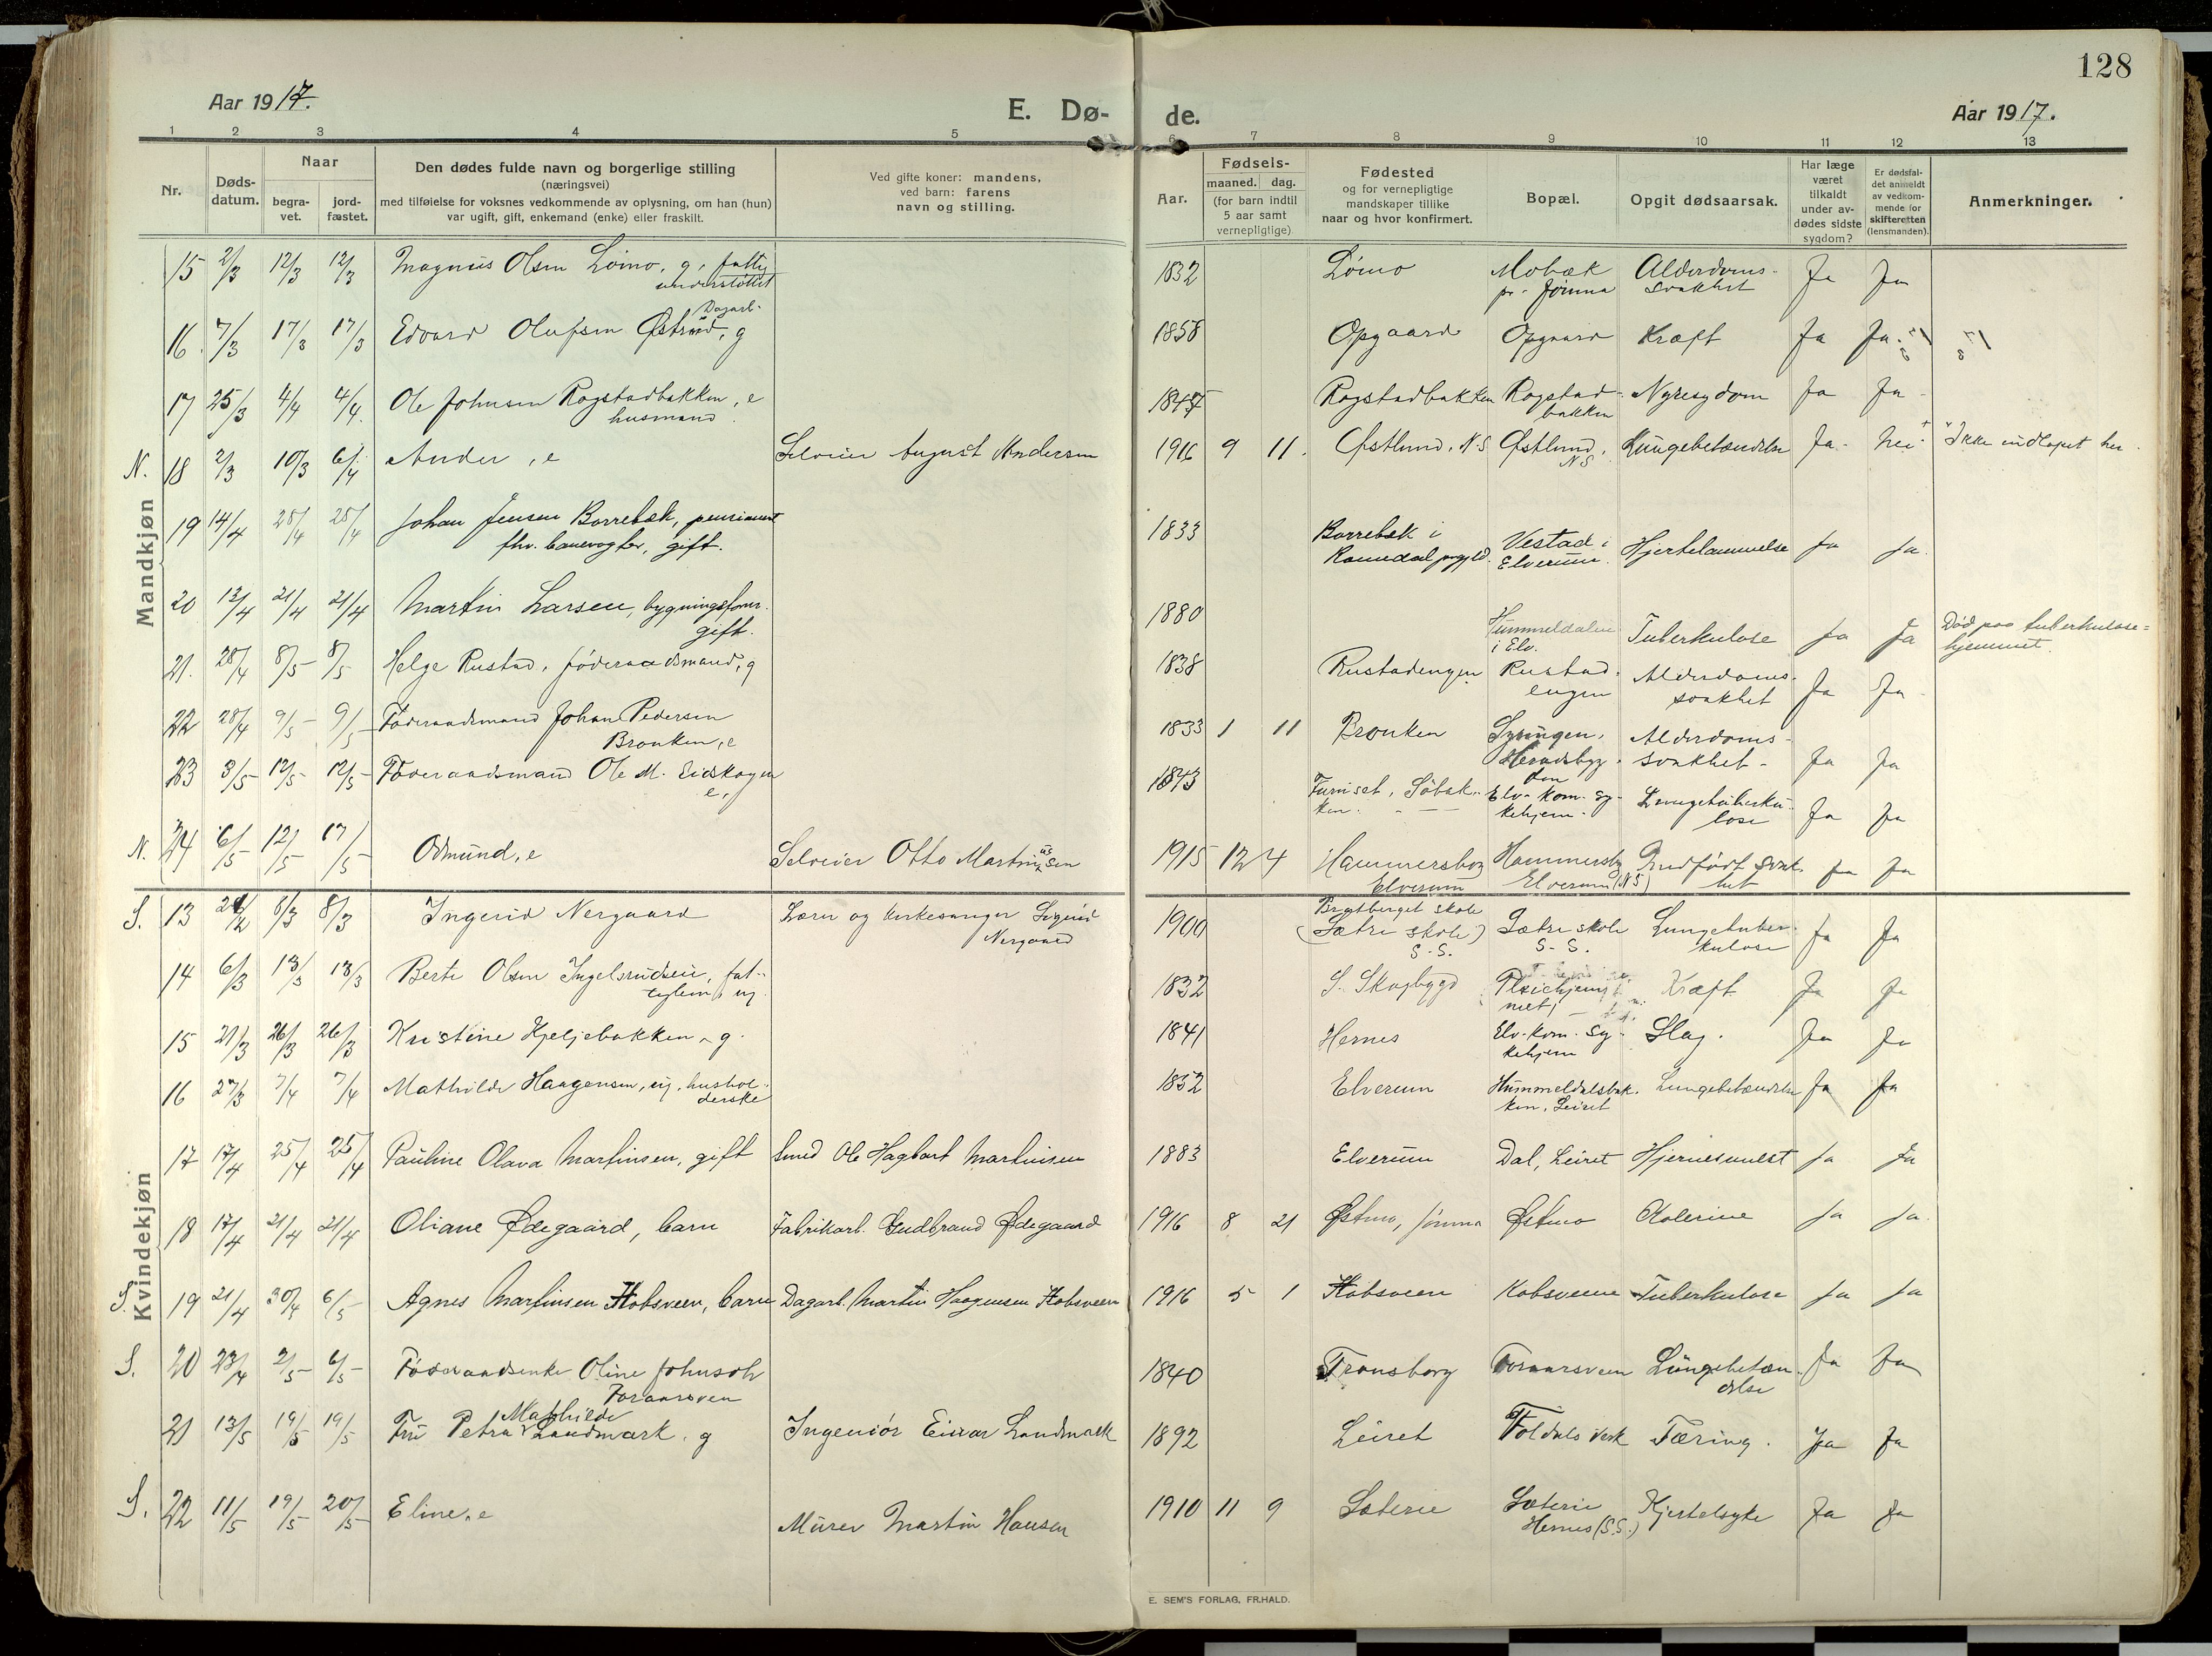 128
Aar 1917.
E. Dø-
de.
Aar 1917.
1 2 3 4 5 6 7 8 9 10 11 12 13
Nr.
Døds-
datum.
Naar
begra-
vet.
jord-
fæstet.
Den dødes fulde navn og borgerlige stilling
(næringsvei)
med tilføielse for voksnes vedkommende av oplysning, om han (hun)
var ugift, gift, enkemand (enke) eller fraskilt.
Ved gifte koner: mandens,
ved barn: farens
navn og stilling.
Aar.
Fødsels-
maaned. dag.
(for barn indtil
5 aar samt
vernepligtige)
Fødested
og for vernepligtige
mandskaper tillike
naar og hvor konfirmert.
Bopæl.
Opgit dødsaarsak.
Har læge
været
tilkaldt
under av-
dødes sidste
sygdom?
Er dødsfal-
det anmeldt
av vedkom-
mende for
skifteretten
(lensmanden).
Anmerkninger.
Mandkjøn
15 2/3 12/3 12/3 Magnus Olsen Lömo, g, fattig 1832 Lömo Mobæk Alderdoms- Ja Ja
understöttet pr. Jömna svakhet
Dagarb.
16 7/3 17/3 17/3 Edvard Olufsen Østrud, g 1858 Opgaard Opgaard Kræft Ja Ja
17 25/3 4/4 4/4 Ole Johnsen Rogstadbakken, e Rogstadbakken Rogstad- Nyresygdom Ja Ja
husmand bakken
N. 18 2/3 10/3 6/4 , e Selveier August Andersen 1916 9 11. Østlund, N S Østlund, Lungebetændelse Ja Nei Ikke indløpet her
N S
19 14/4 25/4 25/4 Johan Jensen Borrebæk, pensionert 1833 Borrebæk i Vestad i Hjertelammelse Ja Ja
fhv. banevogter, gift. Romedal prgjld. Elverum.
20 13/4 21/4 21/4 Martin Larsen, bygningsform. 1880 Hummeldalen Tuberkulose Ja Ja Død paa tuberkulose=
gift. i Elv. hjemmet.
21. 28/4 8/5 8/5 Helge Rustad, föderaadsmand, g 1838 Rustadengen Rustad- Alderdoms- Ja Ja
engen svakhet
22 28/4 9/5 9/5 Föderaadsmand Johan Pedersen 1833 1 11 Bronken Alderdoms- Ja Ja
Bronken, e Heradsbyg- svakhet
den
23 3/5 12/5 12/5 Föderaadsmand Ole M. Eidskogen 1843 Furuset, Elv. kom. sy- Lungetuberku- Ja Ja
e, kehjem. lose
N. 24 6/5 12/5 17/5 Odmund, e Selveier Otto Martinussen 1915 12 4 Hammersbog Hammersbg Medfødt svak- Ja Ja
Elverum Elverum (N S) het
Kvindekjøn
Brystberget skole
S. 13 8/3 8/3 Ingerid Nergaard Lærer og kirkesanger Sigurd 1900 (Sætre skole) Sætre skole Lungetuber- Ja Ja
Nergaard S. S. S. S. kulose
14 6/3 13/3 13/3 Berte Olsen Ingelsrudseie, fat- 1832 S. Skogbygd Pleiehjem- Kræft Ja Ja
tiglem, ug. met,
15 21/3 26/3 26/3 Kristine Kjeljebakken, g. 1841 Hernes Elv. kom. sy- Slag. Ja Ja
kehjem
16 27/3 7/4 7/4 Mathilde Haagensen, ug. hushol- 1852 Elverum Hummeldalsbak- Lungebetændelse Ja Ja
derske ken, Leiret
17 17/4 25/4 25/4 Pauline Olava Martinsen, gift Smed Ole Hagbart Martinsen 1883 Elverum Dal, Leiret Ja Ja
18 17/4 21/4 21/4 Oliane Ødegaard, barn Fabrikarb. Gudbrand Ødegaard 1916 8 21 Østmo, Jömna Østmo Kolerine Ja Ja
S. 19 21/4 30/4 6/5 Agnes Martinsen Kobsveen, barn Dagarb. Martin Haagensen Kobsveen 1916 5 1 Kobsveen Kobsveen Tuberkulose Ja Ja
S. 20 23/4 2/5 6/5 Föderaadsenke Oline Johnsdtr 1840 Transborg Foraarsveen Lungebetæn- Ja Ja
Foraarsveen delse
Mathilde
21 13/5 19/5 19/5 Fru Petra Landmark, g Ingeniör Einar Landmark 1892 Leiret Foldals Verk Tæring. Ja Ja
S. 22 11/5 19/5 20/5 Eline, e Murer Martin Hansen 1910 11 9 Sæterie Sæterie Kjertelsyke Ja Ja
Hernes (S.S.)
E. SEM'S FORLAG, FR.HALD.